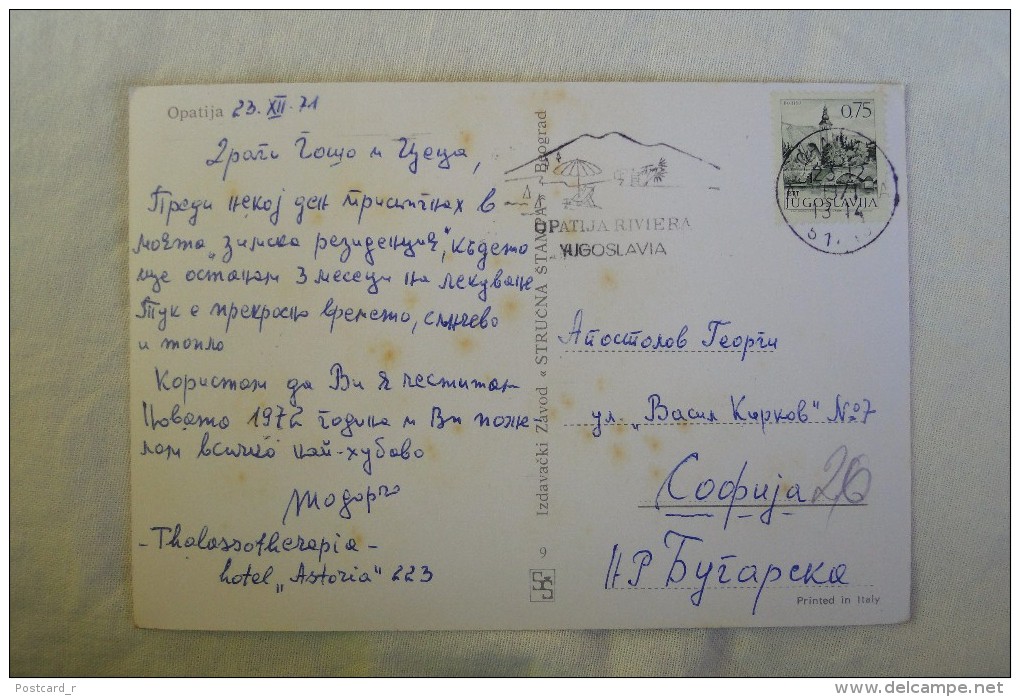 Opatija 23.XII.71
Драги Гошо и Цеца,
Преди некој ден пристигнах в
моята "зимска резиденция", където
ще останам 3 месеци на лекуване
Тук е прекрасно времето, слънчево
и топло
Користам да Ви я честитам
Новата 1972 година и Ви поже
лам всичко най-хубаво
Тодорчо
-Thalassotherapia-
hotel "Astoria" 223
Izdavački Zavod « STRUČNA ŠTAMPA » - Beograd
9
OPATIJA RIVIERA
YUGOSLAVIA
0,75
JUGOSLAVIA
Апостолов Георги
ул. "Васил Кирков" № 7
Софија 26
НР Бугарска
Printed in Italy
Postcard_r
www.delcampe.net